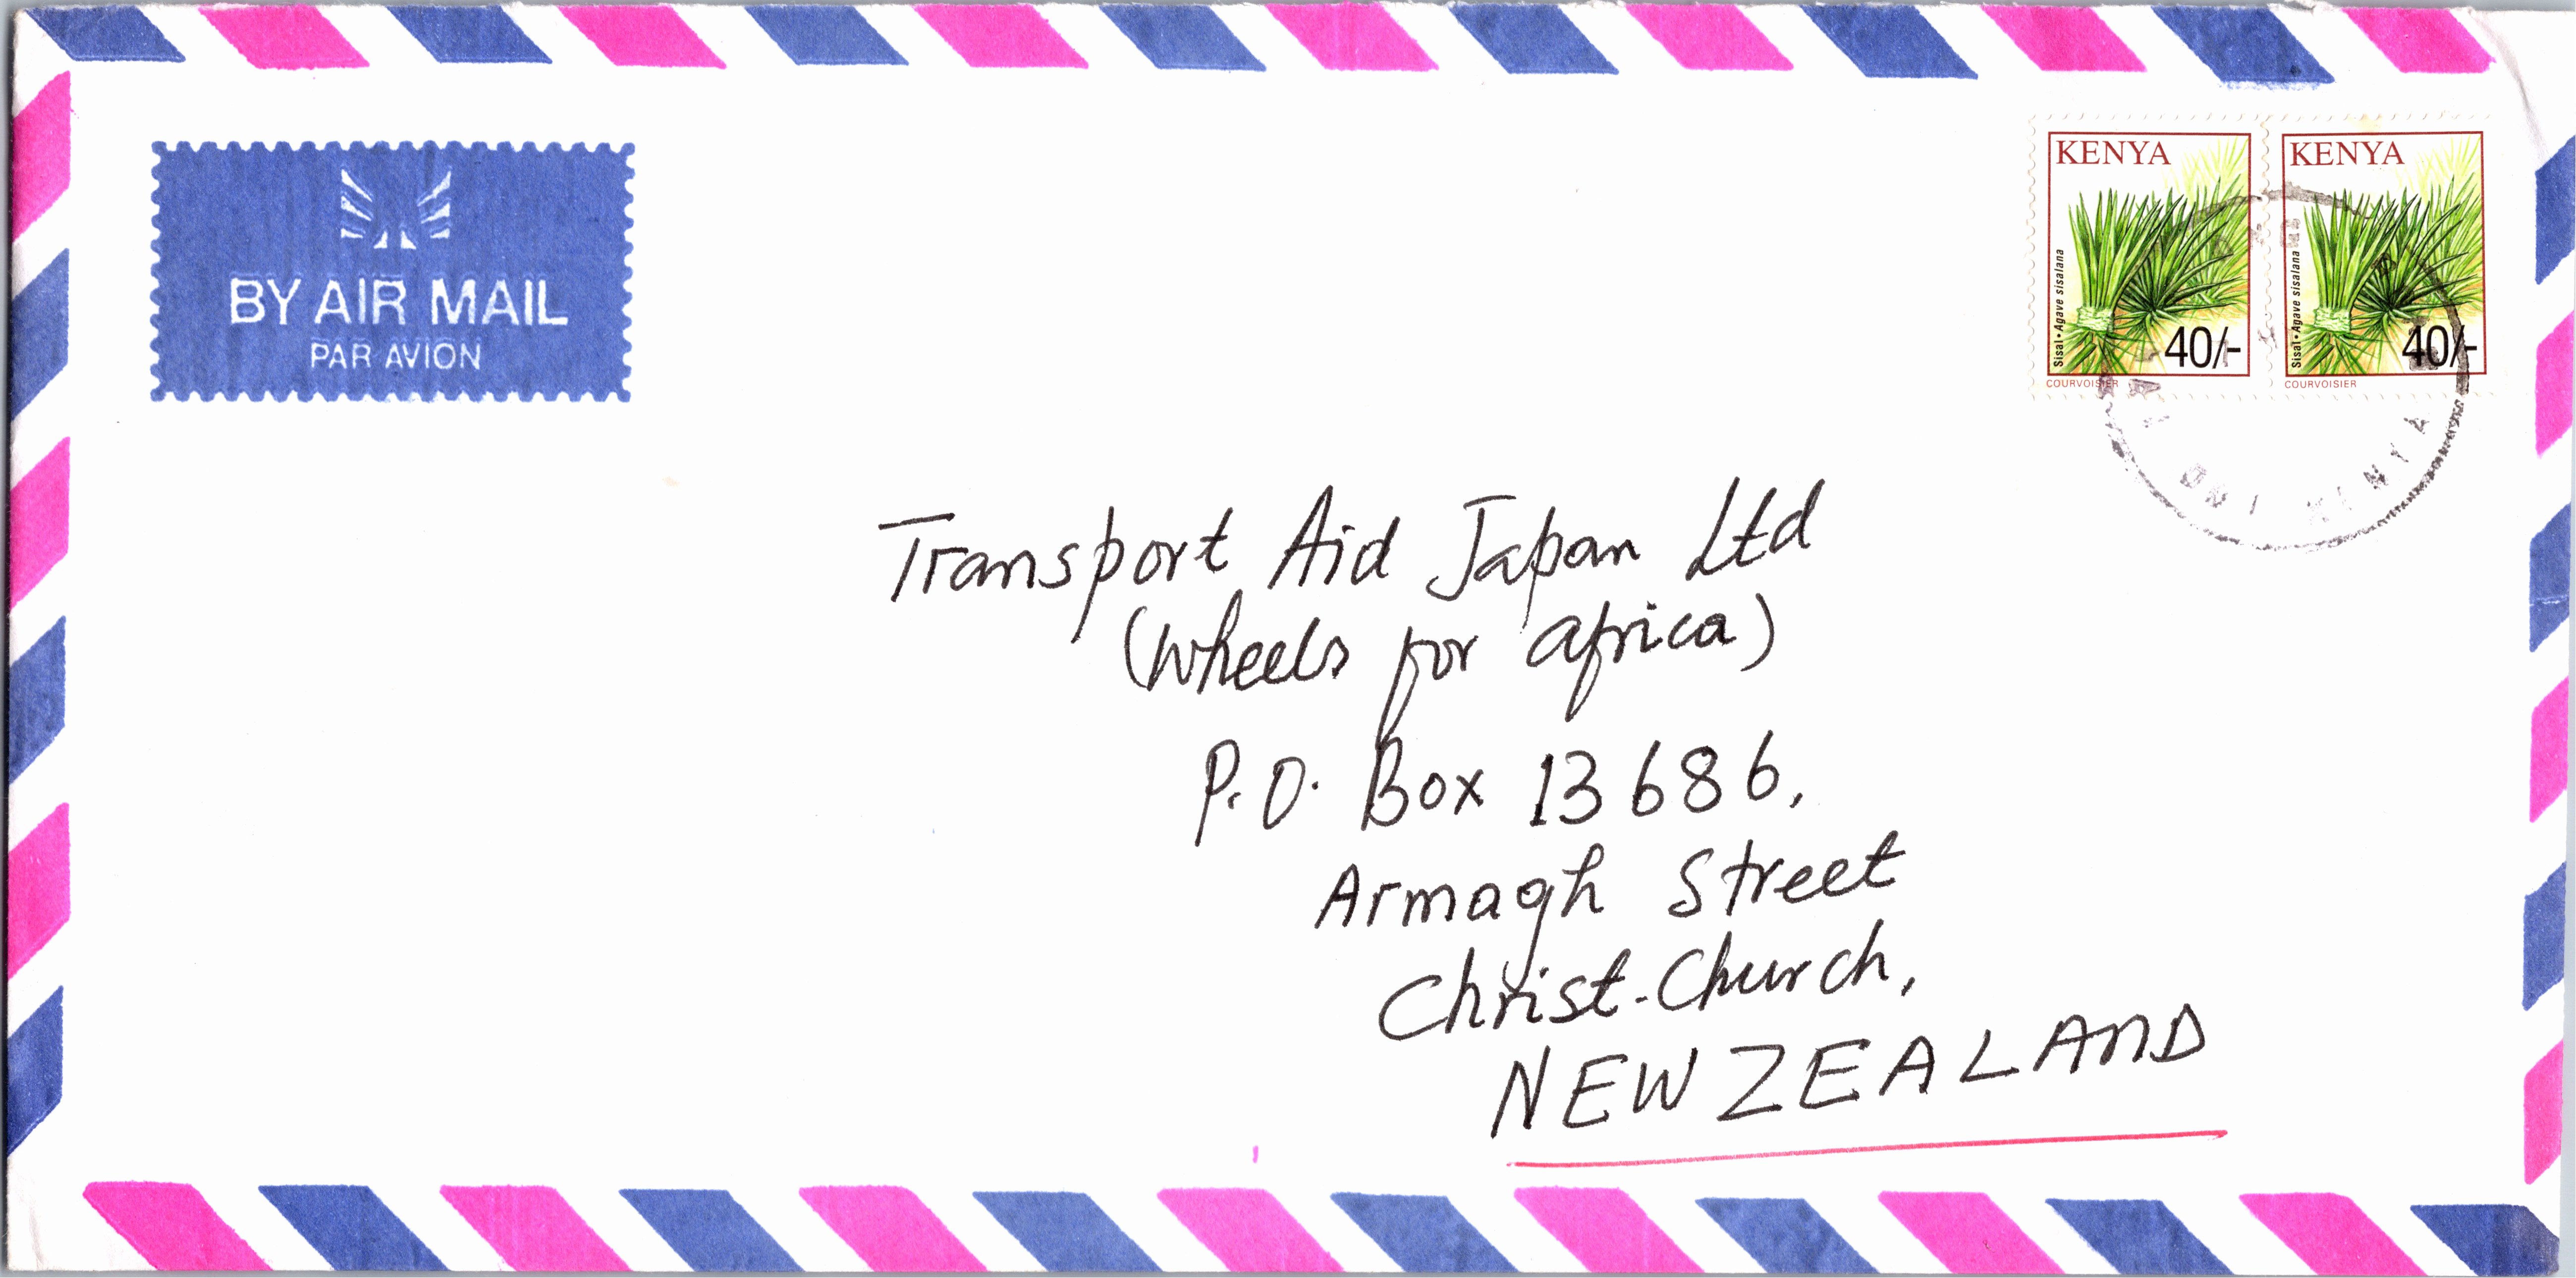 BY AIR MAIL
PAR AVION
KENYA
Sisal • Agave sisalana
40/-
COURVOISIER
KENYA
Sisal • Agave sisalana
40/-
COURVOISIER
KENYA
Transport Aid Japan Ltd
(Wheels for africa)
P.O. Box 13686,
Armagh Street
Christ-Church,
NEW ZEALAND